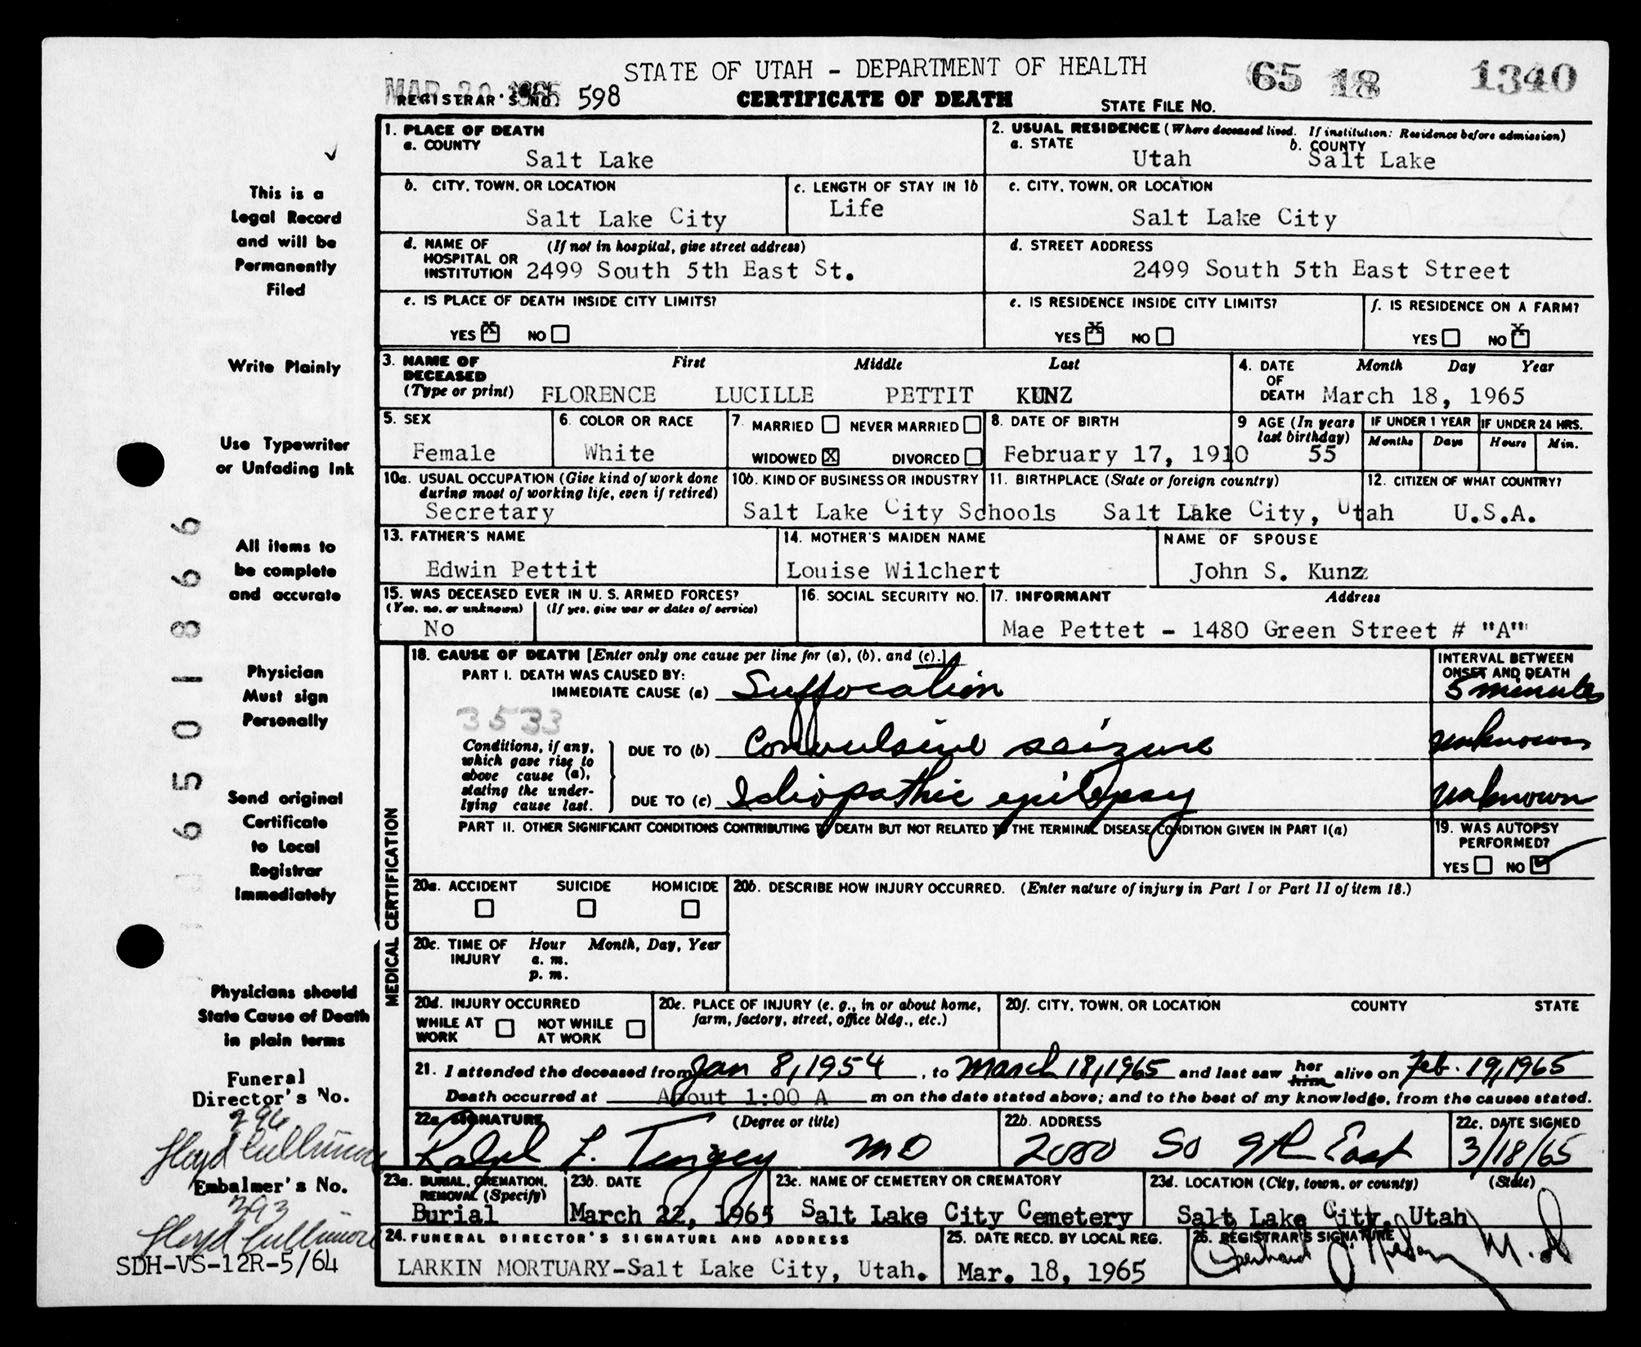 STATE OF UTAH - DEPARTMENT OF HEALTH
65 18 1340
REGISTRAR'S NO. 598
CERTIFICATE OF DEATH
STATE FILE No.
1. PLACE OF DEATH
a. COUNTY
Salt Lake
2. USUAL RESIDENCE (Where deceased lived. If institution: Residence before admission)
a. STATE
Utah
b. COUNTY
Salt Lake
b. CITY, TOWN, OR LOCATION
Salt Lake City
c. LENGTH OF STAY IN 1b
Life
c. CITY, TOWN, OR LOCATION
Salt Lake City
d. NAME OF HOSPITAL OR INSTITUTION (If not in hospital, give street address)
2499 South 5th East St.
d. STREET ADDRESS
2499 South 5th East Street
e. IS PLACE OF DEATH INSIDE CITY LIMITS?
YES X NO
e. IS RESIDENCE INSIDE CITY LIMITS?
YES X NO
f. IS RESIDENCE ON A FARM?
YES NO X
3. NAME OF DECEASED (Type or print)
First Middle Last
FLORENCE LUCILLE PETTIT KUNZ
4. DATE OF DEATH
Month Day Year
March 18, 1965
5. SEX
Female
6. COLOR OR RACE
White
7. MARRIED NEVER MARRIED
WIDOWED X DIVORCED
8. DATE OF BIRTH
February 17, 1910
9 AGE (In years last birthday)
55
IF UNDER 1 YEAR
Months Days
IF UNDER 24 HRS.
Hours Min.
10a. USUAL OCCUPATION (Give kind of work done during most of working life, even if retired)
Secretary
10b. KIND OF BUSINESS OR INDUSTRY
Salt Lake City Schools
11. BIRTHPLACE (State or foreign country)
Salt Lake City, Utah
12. CITIZEN OF WHAT COUNTRY?
U.S.A.
13. FATHER'S NAME
Edwin Pettit
14. MOTHER'S MAIDEN NAME
Louise Wilchert
NAME OF SPOUSE
John S. Kunz
15. WAS DECEASED EVER IN U. S. ARMED FORCES?
(Yes, no, or unknown) (If yes, give war or dates of service)
No
16. SOCIAL SECURITY NO.
17. INFORMANT Address
Mae Pettet - 1480 Green Street # "A"
18. CAUSE OF DEATH [Enter only one cause per line for (a), (b), and (c).]
PART I. DEATH WAS CAUSED BY:
IMMEDIATE CAUSE (a) Suffocation
3533
Conditions, if any, which gave rise to above cause (a), stating the underlying cause last.
DUE TO (b) Convulsive seizure
DUE TO (c) Idiopathic epilepsy
INTERVAL BETWEEN ONSET AND DEATH
5 minutes
unknown
unknown
PART II. OTHER SIGNIFICANT CONDITIONS CONTRIBUTING TO DEATH BUT NOT RELATED TO THE TERMINAL DISEASE CONDITION GIVEN IN PART I(a)
19. WAS AUTOPSY PERFORMED?
YES NO ✓
MEDICAL CERTIFICATION
20a. ACCIDENT SUICIDE HOMICIDE
20b. DESCRIBE HOW INJURY OCCURRED. (Enter nature of injury in Part I or Part II of item 18.)
20c. TIME OF INJURY
Hour Month, Day, Year
a. m.
p. m.
20d. INJURY OCCURRED
WHILE AT WORK NOT WHILE AT WORK
20e. PLACE OF INJURY (e. g., in or about home, farm, factory, street, office bldg., etc.)
20f. CITY, TOWN, OR LOCATION COUNTY STATE
21. I attended the deceased from Jan 8, 1954, to March 18, 1965 and last saw her him alive on Feb. 19, 1965
Death occurred at About 1:00 A m on the date stated above; and to the best of my knowledge, from the causes stated.
22a. SIGNATURE (Degree or title)
Ralph L. Tingey MD
22b. ADDRESS
2000 So 9th East
22c. DATE SIGNED
3/18/65
23a. BURIAL, CREMATION, REMOVAL (Specify)
Burial
23b. DATE
March 22, 1965
23c. NAME OF CEMETERY OR CREMATORY
Salt Lake City Cemetery
23d. LOCATION (City, town, or county) (State)
Salt Lake City, Utah
24. FUNERAL DIRECTOR'S SIGNATURE AND ADDRESS
LARKIN MORTUARY-Salt Lake City, Utah.
25. DATE RECD. BY LOCAL REG.
Mar. 18, 1965
26. REGISTRAR'S SIGNATURE
M.D
This is a
Legal Record
and will be
Permanently
Filed
Write Plainly
Use Typewriter
or Unfading Ink
All items to
be complete
and accurate
Physician
Must sign
Personally
Send original
Certificate
to Local
Registrar
Immediately
Physicians should
State Cause of Death
in plain terms
Funeral
Director's No.
296
Floyd Cullimore
Embalmer's No.
393
Floyd Cullimore
SDH-VS-12R-5/64
6501866